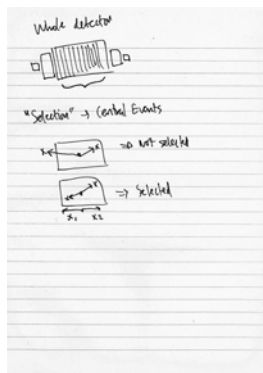 Whole detector
"Selection" → Central Events
⇒ Not selected
⇒ Selected
x₁ x₂